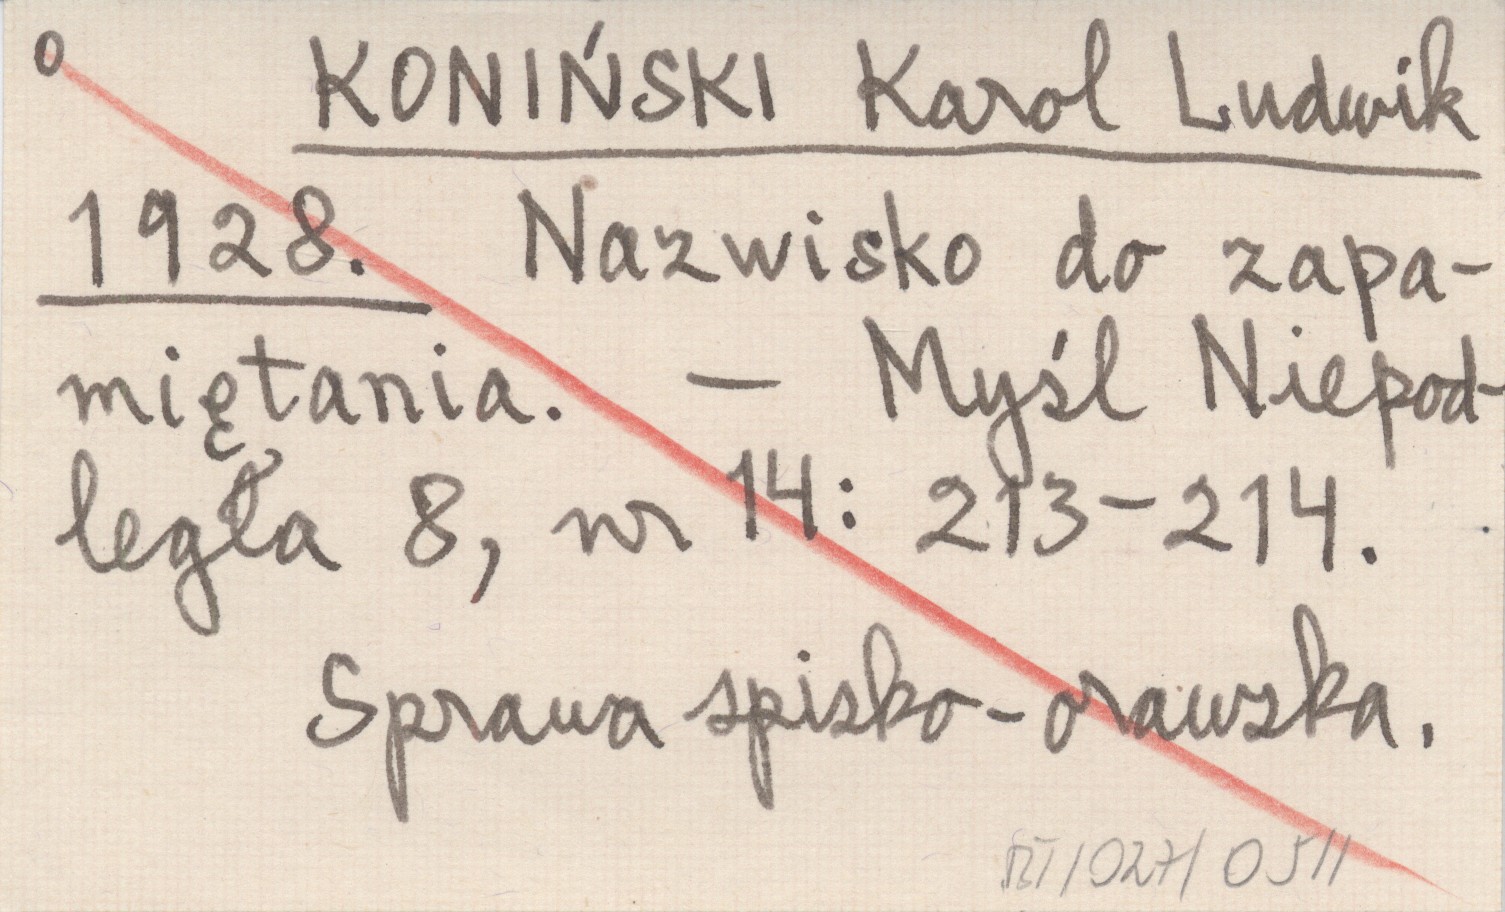 o KONIŃSKI Karol Ludwik
1928. Nazwisko do zapa-
miętania. — Myśl Niepod-
legła 8, nr 14: 213-214.
Sprawa spisko-orawska.
/027/ 0511